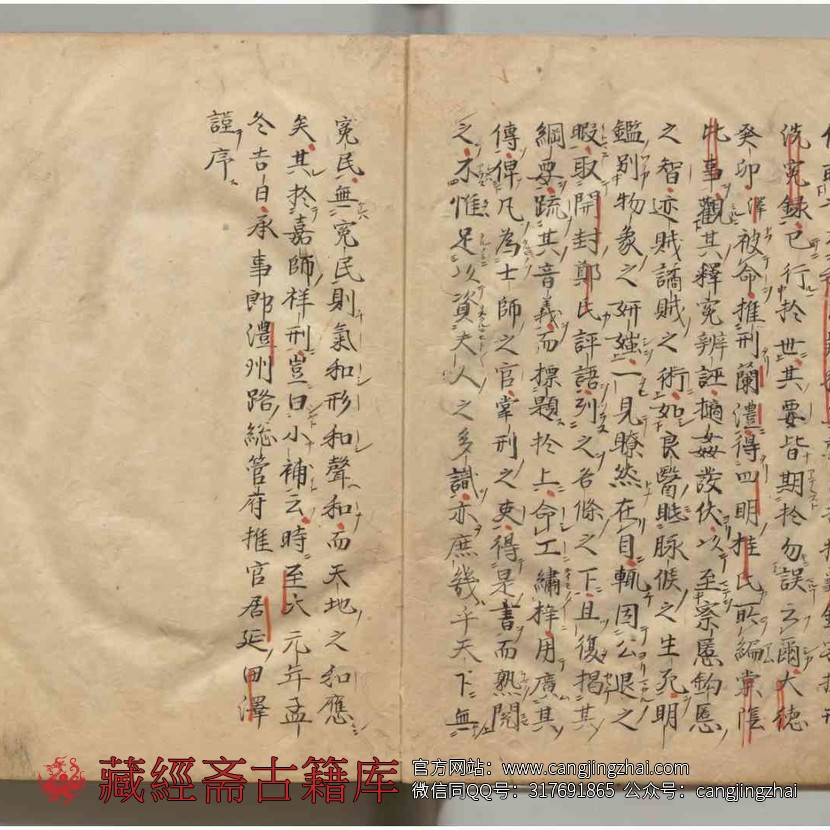 洗冤録已行於世其要皆期於勿誤云爾大徳
癸卯澤被命推刑蘭澧得四明桂氏所編棠陰
比事觀其釋冤辨誣擿姦發伏以至察慝鉤慝
之智迹賊譎賊之術如良醫眡脉候之生死明
鑑別物象之妍媸一見瞭然在目輒因公退之
暇取開封鄭氏評語列之各條之下且復掲其
綱要疏其音義而標題於上命工繡梓用廣其
傳俾凡為士師之官掌刑之吏得是書而熟閲
之不惟足以資夫人之多識亦庶幾乎天下無
冤民無冤民則氣和形和聲和而天地之和應
矣其於嘉師祥刑豈曰小補云時至大元年孟
冬吉日承事郎澧州路総管府推官居延田澤
謹序
藏經斋古籍库
官方网站：www.cangjingzhai.com
微信同QQ号：317691865 公众号：cangjingzhai